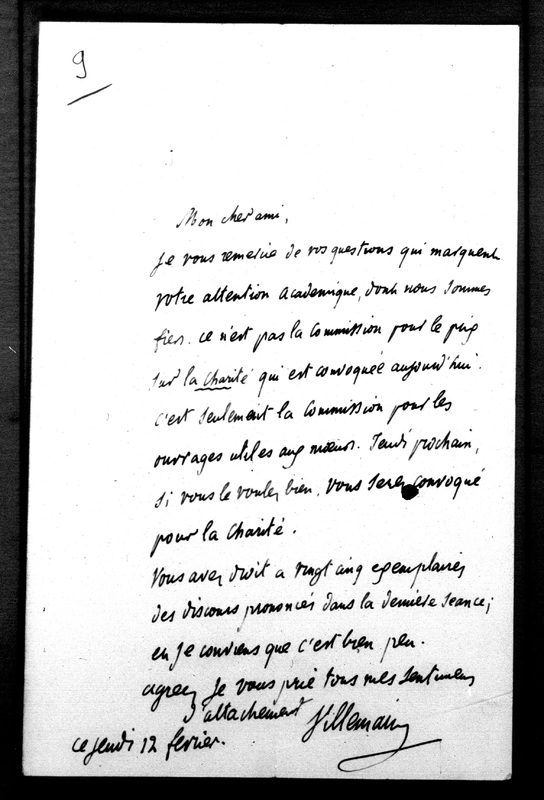 9
Mon cher ami,
Je vous remercie de vos questions qui marquent
votre attention académique, dont nous sommes
fiers. Ce n'est pas la Commission pour le prix
sur la Charité qui est convoquée aujourd'hui.
C'est seulement la Commission pour les
ouvrages utiles aux mœurs. Jeudi prochain,
si vous le voulez bien, vous serez convoqué
pour la Charité.
Vous avez droit a vingt cinq exemplaires
des discours prononcés dans la dernière séance;
en je conviens que c'est bien peu.
agréez, je vous prie tous mes sentimens
d'attachement Villemain
ce jeudi 12 fevrier.